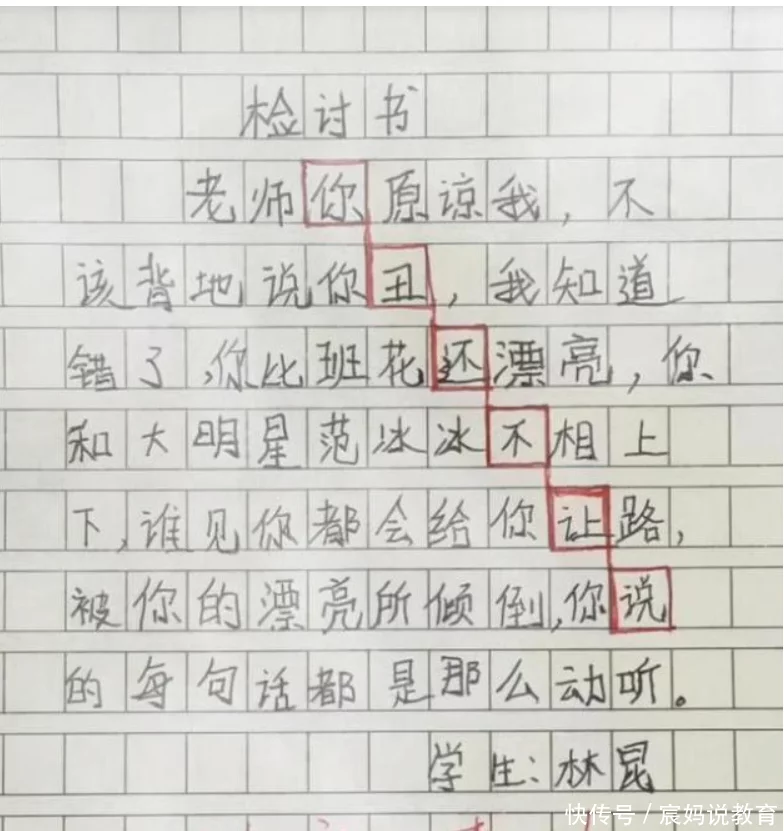 检讨书
老师你原谅我，不
该背地说你丑，我知道
错了，你比班花还漂亮，你
和大明星范冰冰不相上
下，谁见你都会给你让路，
被你的漂亮所倾倒，你说
的每句话都是那么动听。
学生：林昆
快传号／宸妈说教育